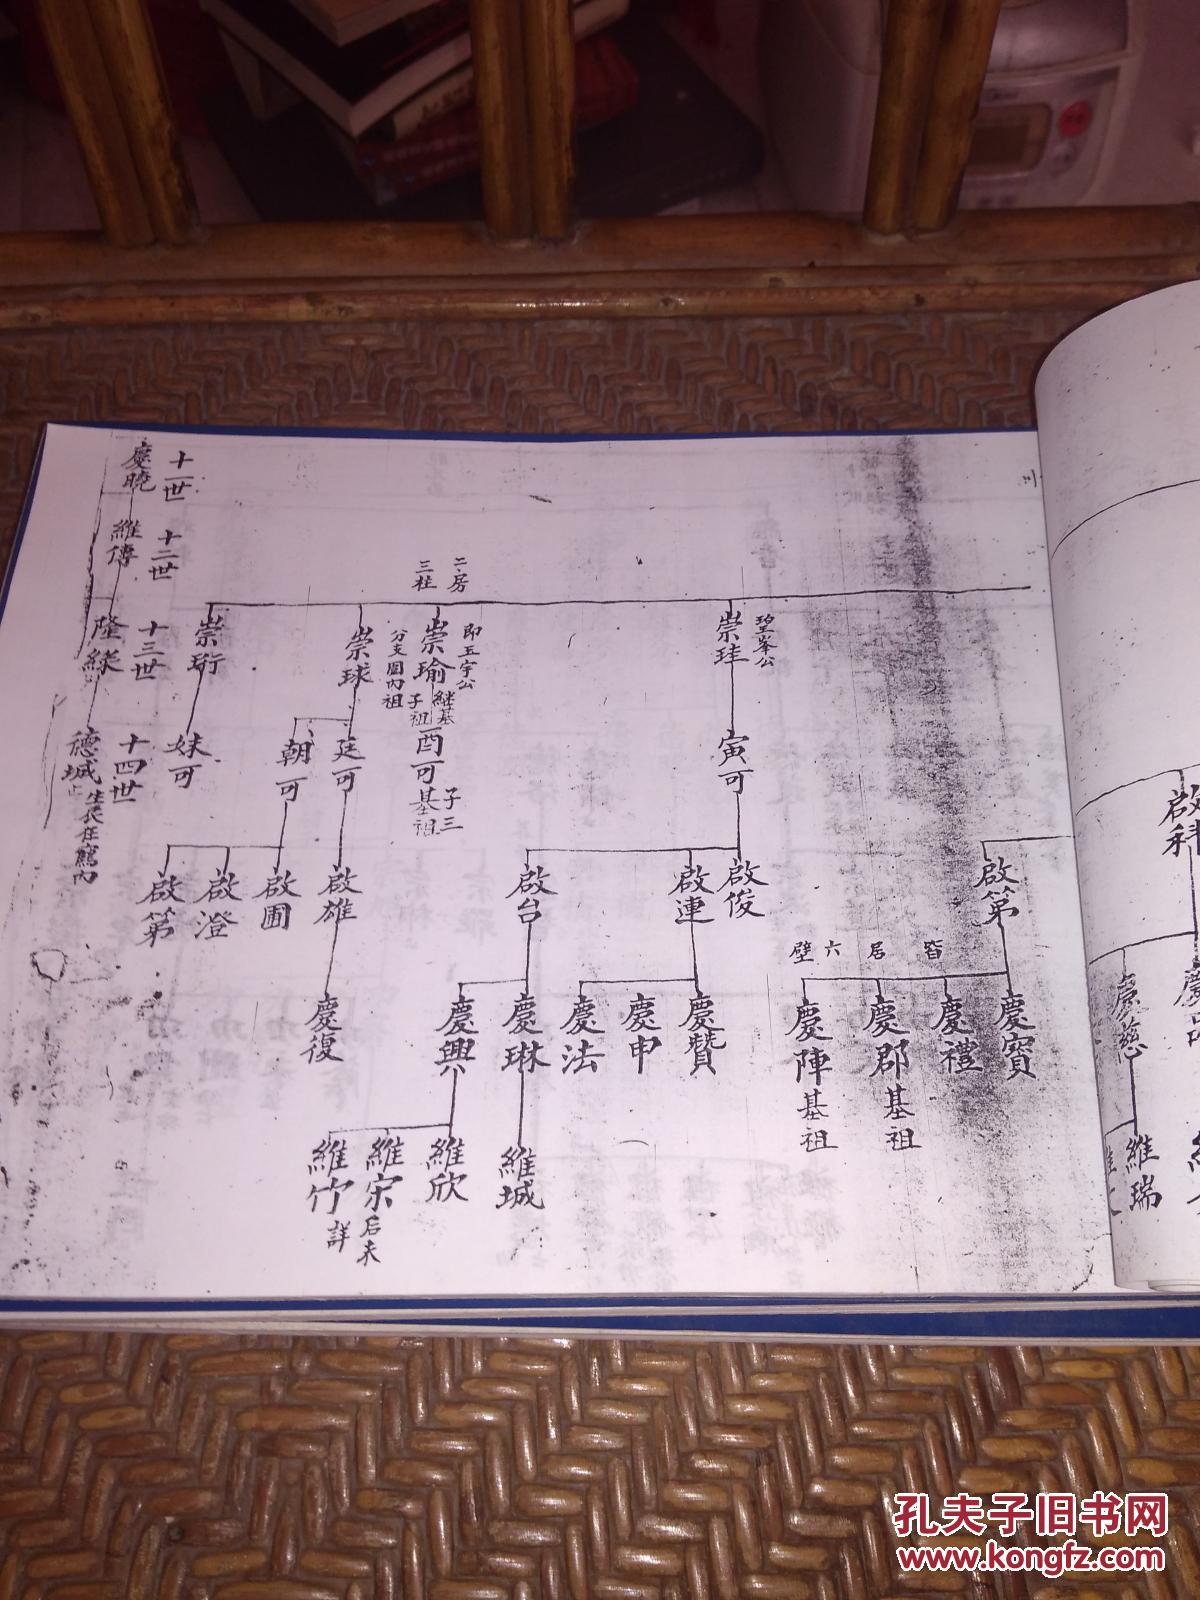 十一世
慶曉
十二世
維傳
十三世
隆綵
十四世
德城
二房
三社
望峯公
崇珪
即五宇公
崇瑜
分支圖內祖
繼基
子祖
崇球
崇珩
寅可
酉可
子三
基祖
廷可
朝可
妹可
啟第
啟俊
啟連
啟台
啟雄
啟圃
啟澄
啟第
皆
居
六
壁
慶寶
慶禮
慶郡
基祖
慶陣
基祖
慶贊
慶申
慶法
慶琳
慶興
慶復
維城
維欣
維宗
后未
維竹
詳
慶慈
維瑞
孔夫子旧书网
www.kongfz.com